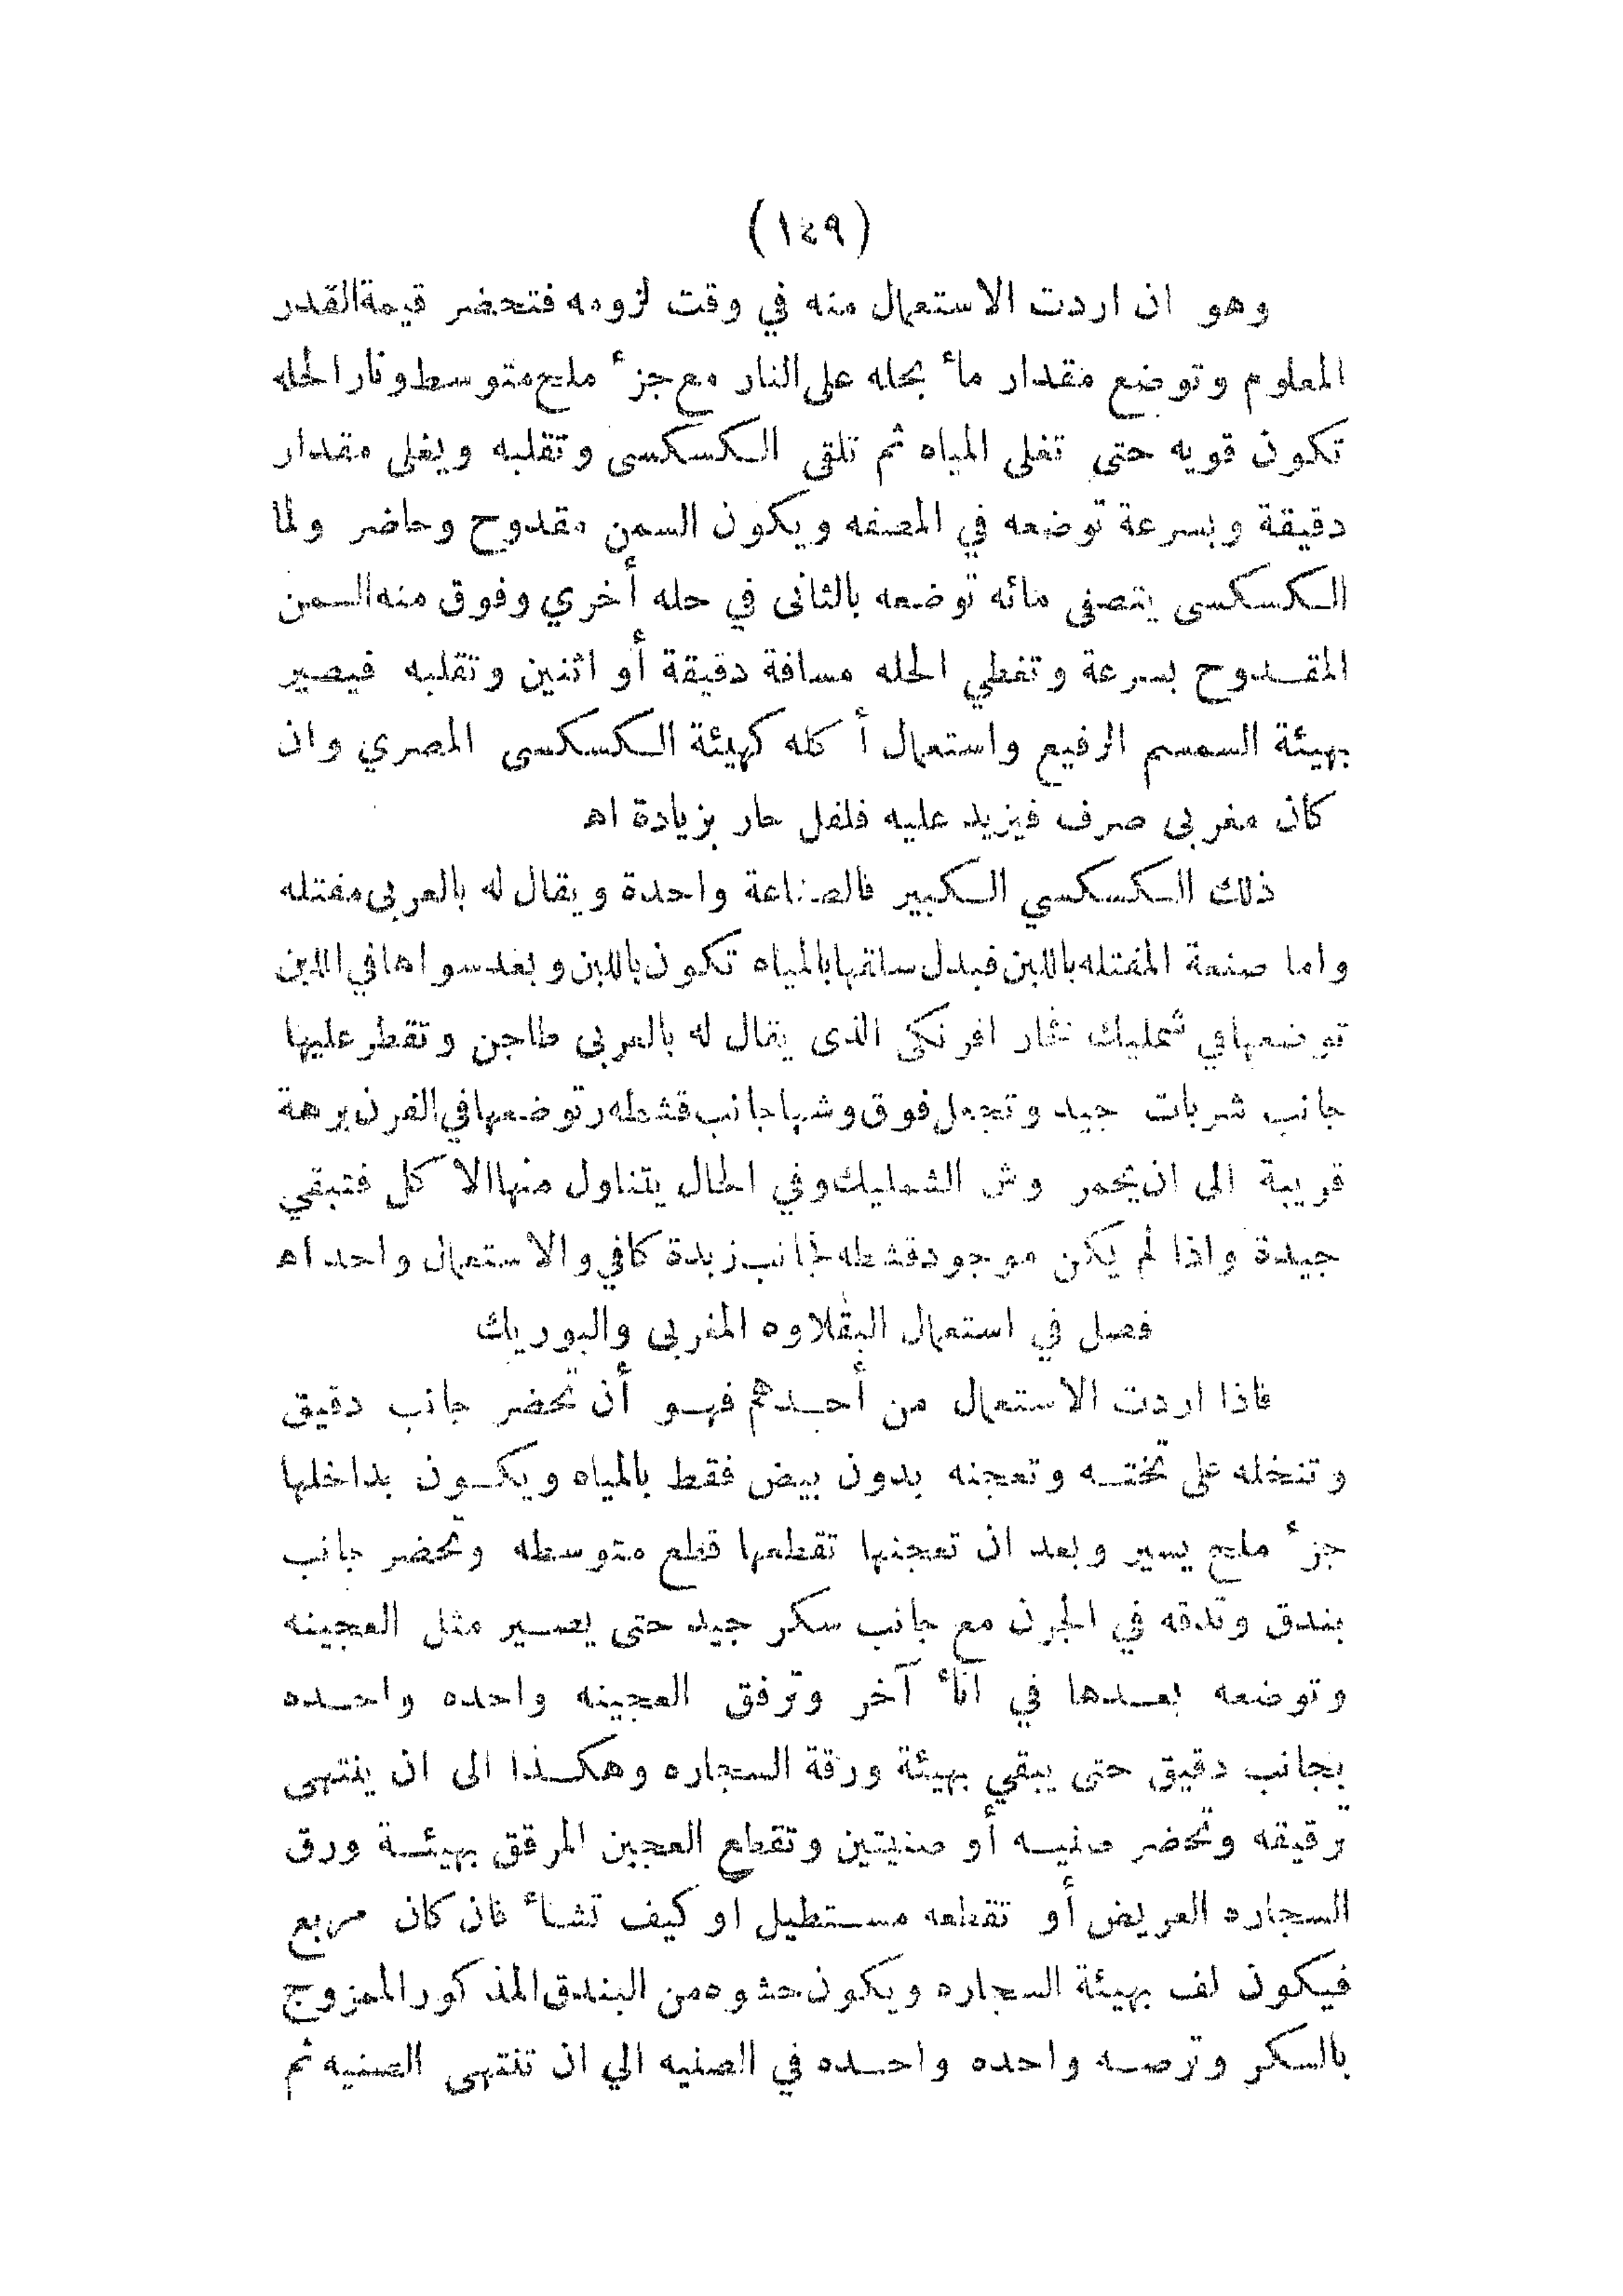 (١٤٩)
وهو ان اردت الاستعمال منه في وقت لزومه فتحضر قيمة القدر
المعلوم وتوضع مقدار مأ بحله على النار مع جزء ملح متوسط ونار الحله
تكون قويه حتى تغلى المياه ثم تلقى الكسكسى وتقلبه ويغلى مقدار
دقيقة وبسرعة توضعه في المصفه ويكون السمن مقدوح وحاضر ولما
الكسكسى يتصفى مائه توضعه بالثانى في حله أخري وفوق منه السمن
المقدوح بسرعة وتغطي الحله مسافة دقيقة أو اثنين وتقلبه فيصير
بهيئة السمسم الرفيع واستعمال أكله كهيئة الكسكسى المصري وان
كان مغربى صرف فيزيد عليه فلفل حار بزيادة اه
ذلك الكسكسي الكبير فالصناعة واحدة ويقال له بالعربى مفتله
واما صنعة المفتله باللبن فبدل سلقها بالمياه تكون باللبن وبعد سواها في اللبن
توضعها في شمليك نخار افرنكى الذى يقال له بالعربى طاجن وتقطر عليها
جانب شربات جيد وتجعل فوق وشها جانب قشطه وتوضعها في الفرن برهة
قريبة الى ان يحمر وش الشمليك وفي الحال يتناول منها الاكل فتبقي
جيدة واذا لم يكن موجود قشطه فجانب زبدة كافي والاستعمال واحد اه
فصل في استعمال البقلاوه المغربى والبوريك
فاذا اردت الاستعمال من أحدهم فهو أن تحضر جانب دقيق
وتنخله على تخته وتعجنه بدون بيض فقط بالمياه ويكون بداخلها
جزء ملح يسير وبعد ان تعجنها تقطعها قطع متوسطه وتحضر جانب
بندق وتدقه في الجرن مع جانب سكر جيد حتى يصير مثل العجينه
وتوضعه بعدها في آنأ آخر وترفق العجينه واحده واحده
بجانب دقيق حتى يبقي بهيئة ورقة السجاره وهكذا الى ان ينتهى
ترقيقه وتحضر صنيه أو صنيتين وتقطع العجين المرقق بهيئة ورق
السجاره العريض أو تقطعه مستطيل او كيف تشأ فان كان مربع
فيكون لف بهيئة السجاره ويكون حشوه من البندق المذكور الممزوج
بالسكر وترصه واحده واحده في الصنيه الي ان تنتهى الصنيه ثم